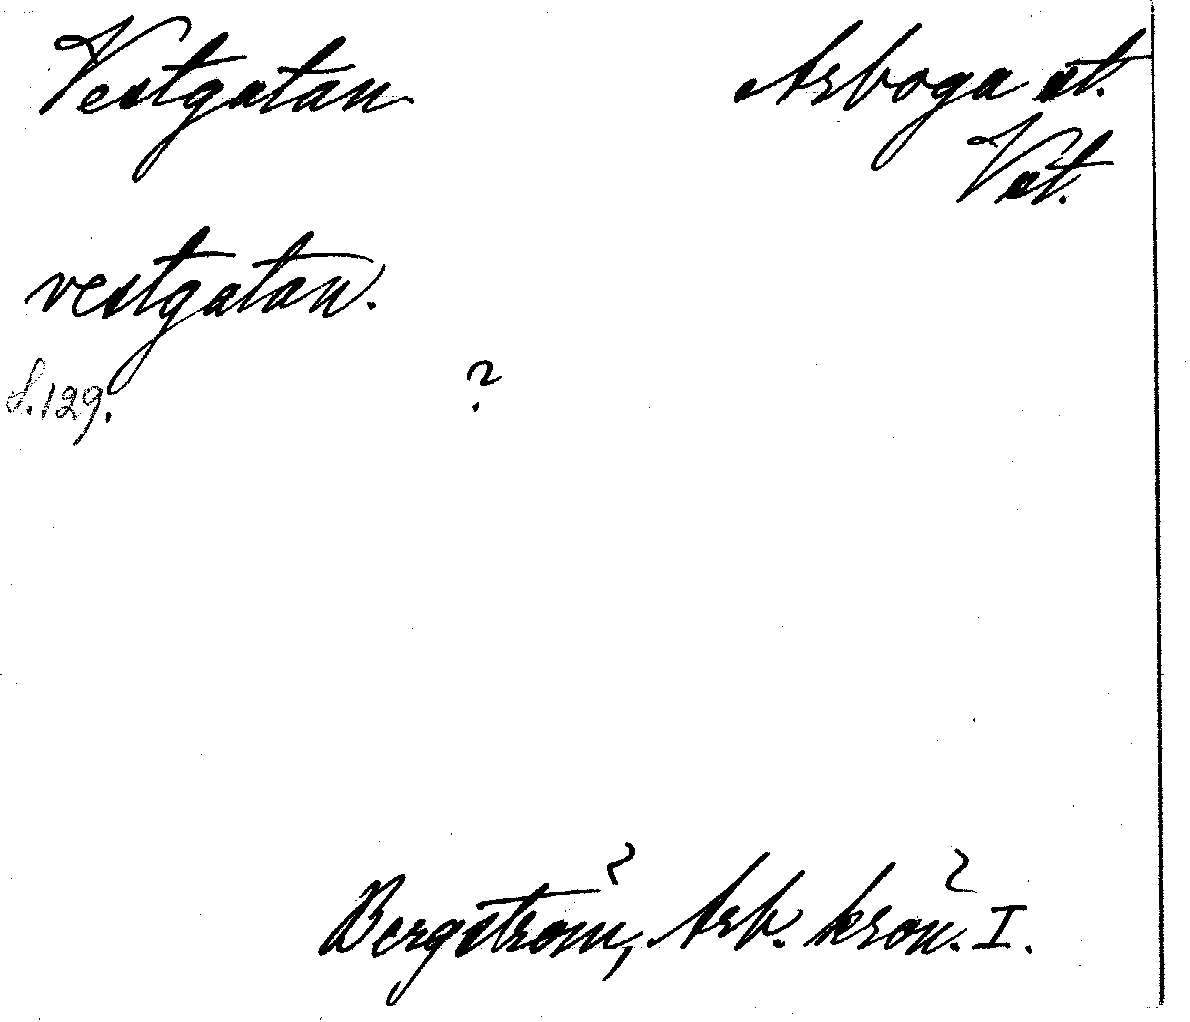 Vestgatan Arboga st.
Vst.
vestgatan.
S. 129. ?
Bergström, Arb. krön. I.